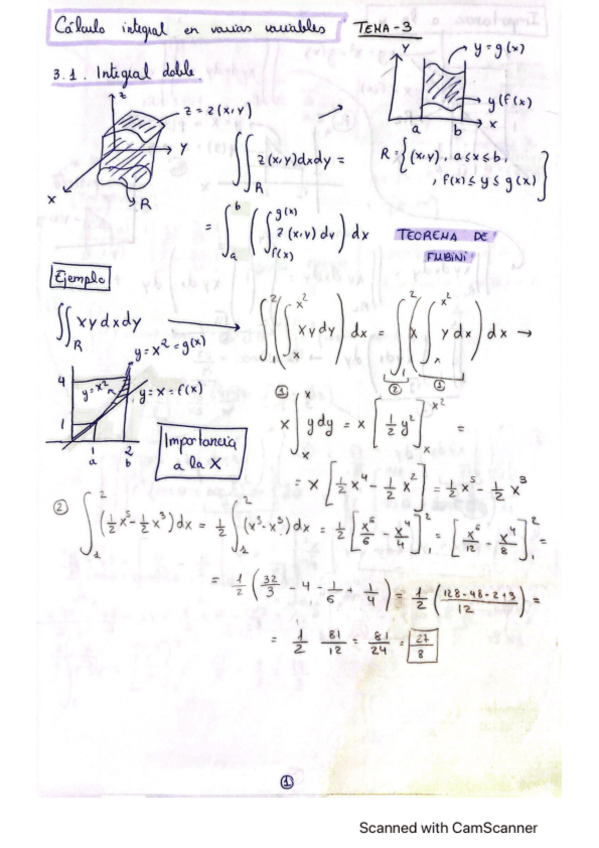 Cálculo integral en varias variables TEMA-3
3.1. Integral doble.
z = z(x,y)
z
y
x
R
y = g(x)
y
y(f(x)
a b x
∬_R z(x,y)dxdy =
R = {(x,y), a≤x≤b,
, f(x) ≤ y ≤ g(x)}
= ∫_a^b ( ∫_{f(x)}^{g(x)} z(x,y) dy ) dx
TEOREMA DE
FUBINI
Ejemplo
∬_R xydxdy → ∫_1^2 ( ∫_x^{x²} xydy ) dx = ∫_1^2 ( x ∫_x^{x²} y dx ) dx →
② ①
y = x² = g(x)
4
y = x²
y = x = f(x)
1
1 2
a b
Importancia
a la X
① x ∫_x^x ydy = x [ 1/2 y² ]_x^{x²} =
= x [ 1/2 x⁴ - 1/2 x² ] = 1/2 x⁵ - 1/2 x³
② ∫_1^2 (1/2 x⁵ - 1/2 x³) dx = 1/2 ∫_1^2 (x⁵ - x³) dx = 1/2 [ x⁶/6 - x⁴/4 ]_1^2 = [ x⁶/12 - x⁴/8 ]_1^2 =
= 1/2 ( 32/3 - 4 - 1/6 + 1/4 ) = 1/2 ( 128-48-2+3 / 12 ) =
= 1/2 81/12 = 81/24 = 27/8
①
Scanned with CamScanner